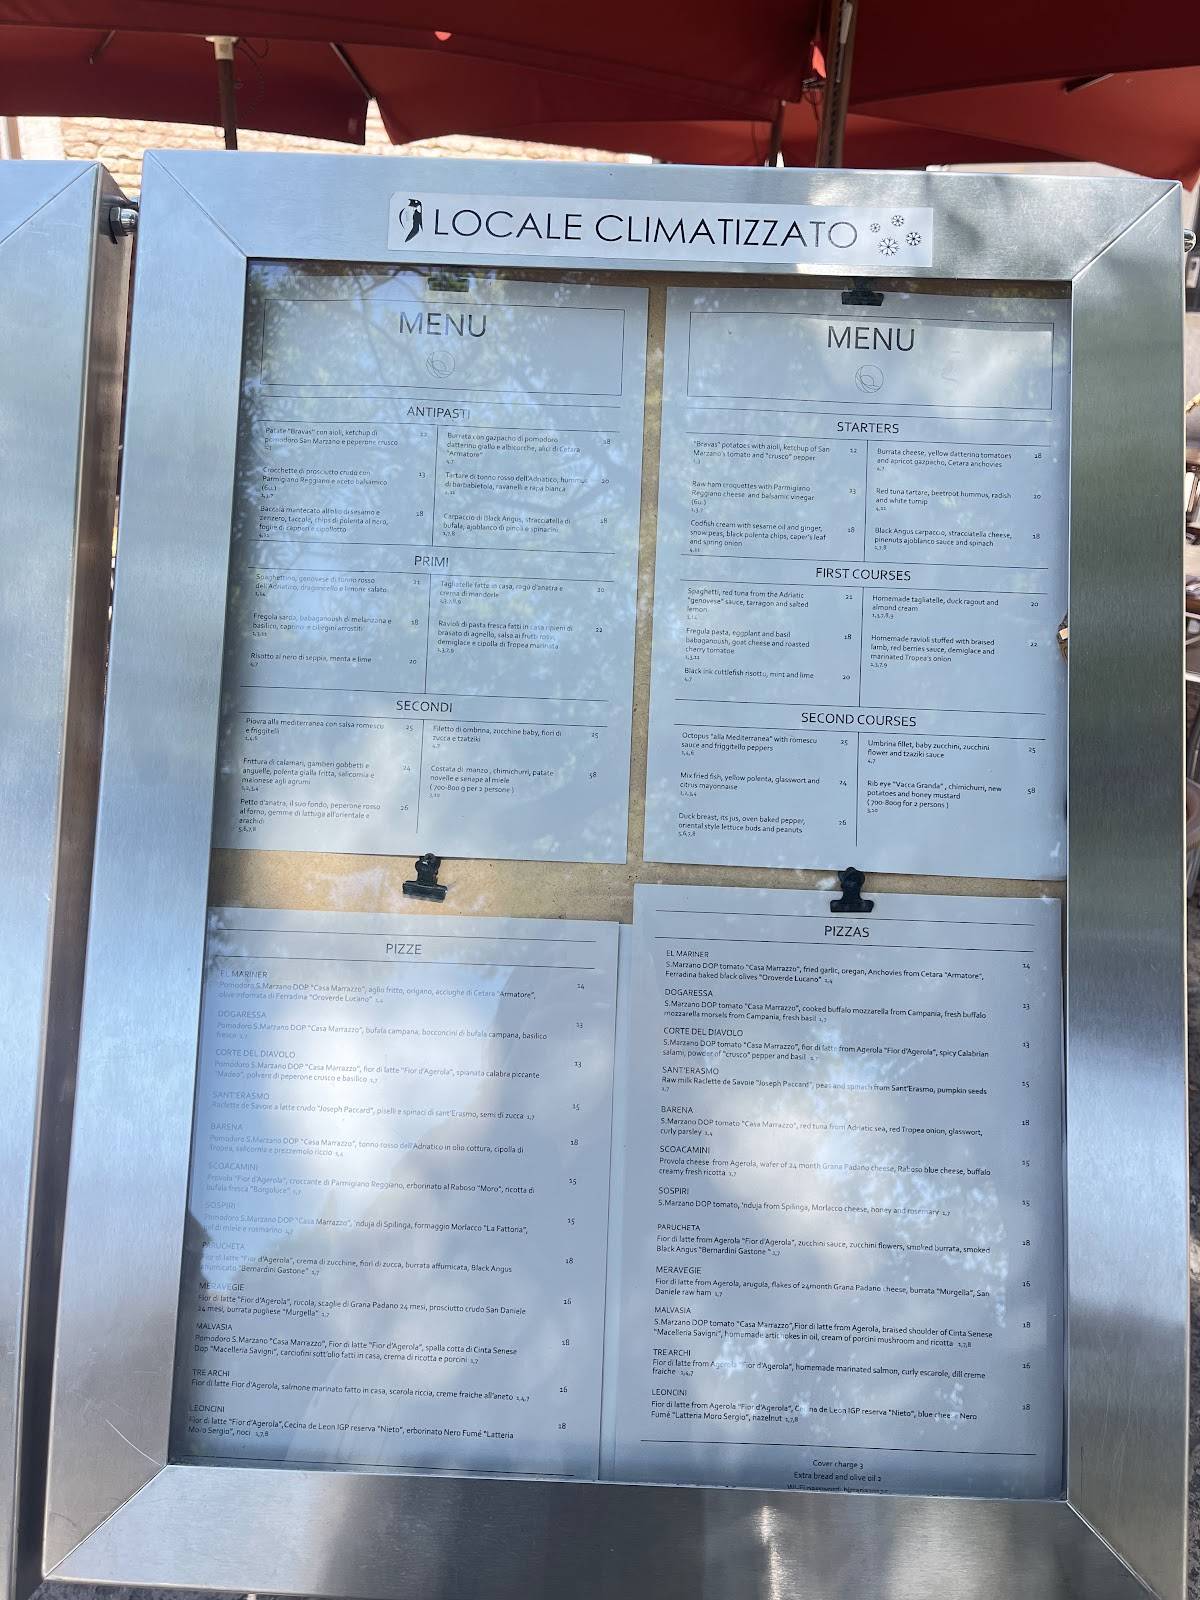 LOCALE CLIMATIZZATO
MENU
ANTIPASTI
Patate "Bravas" con aioli, ketchup di
pomodoro San Marzano e peperone crusco
12
Crocchette di prosciutto crudo con
Parmigiano Reggiano e aceto balsamico
(6u.)
1,3,7
13
Baccalà mantecato all'olio di sesamo e
zenzero, taccole, chips di polenta al nero,
foglie di capperi e cipollotto
4,11
18
Burrata con gazpacho di pomodoro
datterino giallo e albicocche, alici di Cetara
"Armatore"
4,7
18
Tartare di tonno rosso dell'Adriatico, hummus
di barbabietola, ravanelli e rapa bianca
4,11
20
Carpaccio di Black Angus, stracciatella di
bufala, ajoblanco di pinoli e spinacini
1,7,8
18
PRIMI
Spaghettino, genovese di tonno rosso
dell'Adriatico, dragoncello e limone salato
1,14
21
Fregola sarda, babaganoush di melanzana e
basilico, caprino e ciliegini arrostiti
1,3,11
18
Risotto al nero di seppia, menta e lime
4,7
20
Tagliatelle fatte in casa, ragù d'anatra e
crema di mandorle
1,3,7,8,9
20
Ravioli di pasta fresca fatti in casa ripieni di
brasato di agnello, salsa ai frutti rossi,
demiglace e cipolla di Tropea marinata
1,3,7,9
22
SECONDI
Piovra alla mediterranea con salsa romescu
e friggitelli
1,4,6
25
Frittura di calamari, gamberi gobbetti e
anguelle, polenta gialla fritta, salicornia e
maionese agli agrumi
1,2,3,4
24
Petto d'anatra, il suo fondo, peperone rosso
al forno, gemme di lattuga all'orientale e
arachidi
5,6,7,8
26
Filetto di ombrina, zucchine baby, fiori di
zucca e tzatziki
4,7
25
Costata di manzo, chimichurri, patate
novelle e senape al miele
( 700-800 g per 2 persone )
3,10
58
MENU
STARTERS
"Bravas" potatoes with aioli, ketchup of San
Marzano's tomato and "crusco" pepper
12
Raw ham croquettes with Parmigiano
Reggiano cheese and balsamic vinegar
(6u.)
1,3,7
13
Codfish cream with sesame oil and ginger,
snow peas, black polenta chips, caper's leaf
and spring onion
4,11
18
Burrata cheese, yellow datterino tomatoes
and apricot gazpacho, Cetara anchovies
4,7
18
Red tuna tartare, beetroot hummus, radish
and white turnip
4,11
20
Black Angus carpaccio, stracciatella cheese,
pinenuts ajoblanco sauce and spinach
1,7,8
18
FIRST COURSES
Spaghetti, red tuna from the Adriatic
"genovese" sauce, tarragon and salted
lemon
1,14
21
Fregula pasta, eggplant and basil
babaganoush, goat cheese and roasted
cherry tomatoe
1,3,11
18
Black ink cuttlefish risotto, mint and lime
4,7
20
Homemade tagliatelle, duck ragout and
almond cream
1,3,7,8,9
20
Homemade ravioli stuffed with braised
lamb, red berries sauce, demiglace and
marinated Tropea's onion
1,3,7,9
22
SECOND COURSES
Octopus "alla Mediterranea" with romescu
sauce and friggitello peppers
1,4,6
25
Mix fried fish, yellow polenta, glasswort and
citrus mayonnaise
1,2,3,4
24
Duck breast, its jus, oven baked pepper,
oriental style lettuce buds and peanuts
5,6,7,8
26
Umbrina fillet, baby zucchini, zucchini
flower and tzaziki sauce
4,7
25
Rib eye "Vacca Granda" , chimichurri, new
potatoes and honey mustard
( 700-800g for 2 persons )
3,10
58
PIZZE
EL MARINER
Pomodoro S.Marzano DOP "Casa Marrazzo", aglio fritto, origano, acciughe di Cetara "Armatore",
olive infornata di Ferradina "Oroverde Lucano" 1,4
14
DOGARESSA
Pomodoro S.Marzano DOP "Casa Marrazzo", bufala campana, bocconcini di bufala campana, basilico
fresco 1,7
13
CORTE DEL DIAVOLO
Pomodoro S.Marzano DOP "Casa Marrazzo", fior di latte "Fior d'Agerola", spianata calabra piccante
"Madeo", polvere di peperone crusco e basilico 1,7
13
SANT'ERASMO
Raclette de Savoie a latte crudo "Joseph Paccard", piselli e spinaci di sant'Erasmo, semi di zucca 1,7
15
BARENA
Pomodoro S.Marzano DOP "Casa Marrazzo", tonno rosso dell'Adriatico in olio cottura, cipolla di
Tropea, salicornia e prezzemolo riccio 1,4
18
SCOACAMINI
Provola "Fior d'Agerola", croccante di Parmigiano Reggiano, erborinato al Raboso "Moro", ricotta di
bufala fresca "Borgoluce" 1,7
15
SOSPIRI
Pomodoro S.Marzano DOP "Casa Marrazzo", 'nduja di Spilinga, formaggio Morlacco "La Fattoria",
gel di miele e rosmarino 1,7
15
PARUCHETA
Fior di latte "Fior d'Agerola", crema di zucchine, fiori di zucca, burrata affumicata, Black Angus
affumicato "Bernardini Gastone" 1,7
18
MERAVEGIE
Fior di latte "Fior d'Agerola", rucola, scaglie di Grana Padano 24 mesi, prosciutto crudo San Daniele
24 mesi, burrata pugliese "Murgella" 1,7
16
MALVASIA
Pomodoro S.Marzano "Casa Marrazzo", Fior di latte "Fior d'Agerola", spalla cotta di Cinta Senese
Dop "Macelleria Savigni", carciofini sott'olio fatti in casa, crema di ricotta e porcini 1,7
18
TRE ARCHI
Fior di latte Fior d'Agerola, salmone marinato fatto in casa, scarola riccia, creme fraiche all'aneto 1,4,7
16
LEONCINI
Fior di latte "Fior d'Agerola",Cecina de Leon IGP reserva "Nieto", erborinato Nero Fumé "Latteria
Moro Sergio", noci 1,7,8
18
PIZZAS
EL MARINER
S.Marzano DOP tomato "Casa Marrazzo", fried garlic, oregan, Anchovies from Cetara "Armatore",
Ferradina baked black olives "Oroverde Lucano" 1,4
14
DOGARESSA
S.Marzano DOP tomato "Casa Marrazzo", cooked buffalo mozzarella from Campania, fresh buffalo
mozzarella morsels from Campania, fresh basil 1,7
13
CORTE DEL DIAVOLO
S.Marzano DOP tomato "Casa Marrazzo", fior di latte from Agerola "Fior d'Agerola", spicy Calabrian
salami, powder of "crusco" pepper and basil 1,7
13
SANT'ERASMO
Raw milk Raclette de Savoie "Joseph Paccard", peas and spinach from Sant'Erasmo, pumpkin seeds
1,7
15
BARENA
S.Marzano DOP tomato "Casa Marrazzo", red tuna from Adriatic sea, red Tropea onion, glasswort,
curly parsley 1,4
18
SCOACAMINI
Provola cheese from Agerola, wafer of 24 month Grana Padano cheese, Raboso blue cheese, buffalo
creamy fresh ricotta 1,7
15
SOSPIRI
S.Marzano DOP tomato, 'nduja from Spilinga, Morlacco cheese, honey and rosemary 1,7
15
PARUCHETA
Fior di latte from Agerola "Fior d'Agerola", zucchini sauce, zucchini flowers, smoked burrata, smoked
Black Angus "Bernardini Gastone" 1,7
18
MERAVEGIE
Fior di latte from Agerola, arugula, flakes of 24month Grana Padano cheese, burrata "Murgella", San
Daniele raw ham 1,7
16
MALVASIA
S.Marzano DOP tomato "Casa Marrazzo",Fior di latte from Agerola, braised shoulder of Cinta Senese
"Macelleria Savigni", homemade artichokes in oil, cream of porcini mushroom and ricotta 1,7,8
18
TRE ARCHI
Fior di latte from Agerola "Fior d'Agerola", homemade marinated salmon, curly escarole, dill creme
fraiche 1,4,7
16
LEONCINI
Fior di latte from Agerola "Fior d'Agerola", Cecina de Leon IGP reserva "Nieto", blue cheese Nero
Fumé "Latteria Moro Sergio", hazelnut 1,7,8
18
Cover charge 3
Extra bread and olive oil 2
Wi-Fi password: